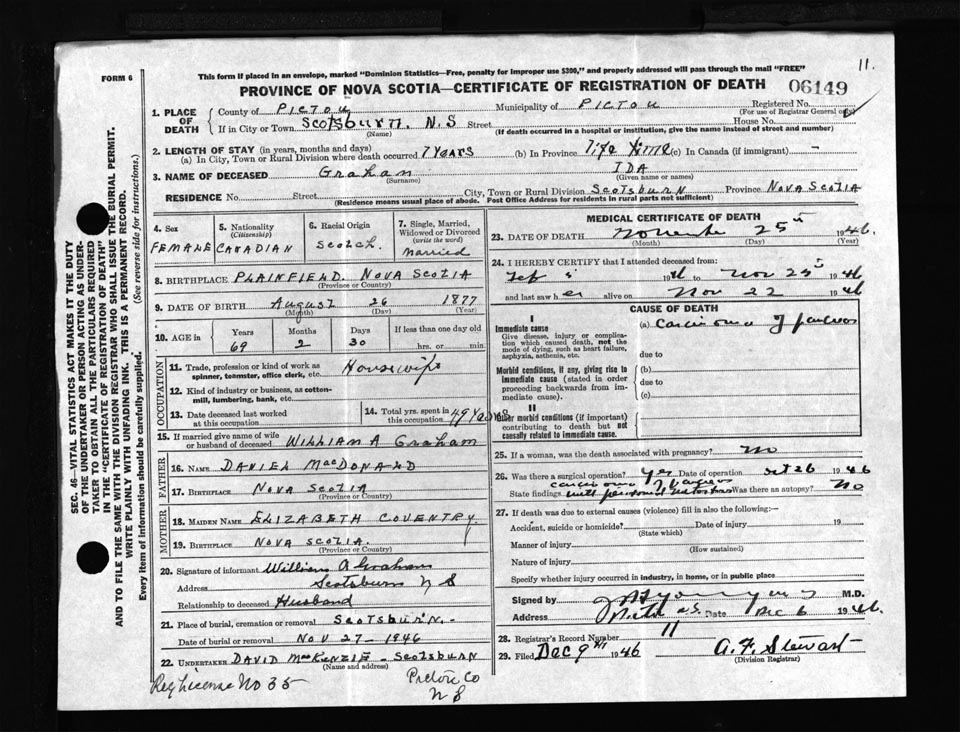 FORM 6
This form if placed in an envelope, marked "Dominion Statistics—Free, penalty for improper use $300," and properly addressed will pass through the mail "FREE"
11.
PROVINCE OF NOVA SCOTIA—CERTIFICATE OF REGISTRATION OF DEATH 06149
1. PLACE OF DEATH
County of PICTOU Municipality of PICTOU Registered No.
(For use of Registrar General only)
If in City or Town Scotsburn. N.S Street House No.
(Name) (If death occurred in a hospital or institution, give the name instead of street and number)
2. LENGTH OF STAY (in years, months and days)
(a) In City, Town or Rural Division where death occurred 7 years (b) In Province life time (c) In Canada (if immigrant) —
3. NAME OF DECEASED Graham IDA
(Surname) (Given name or names)
RESIDENCE No. Street City, Town or Rural Division Scotsburn Province Nova Scotia
(Residence means usual place of abode. Post Office Address for residents in rural parts not sufficient)
4. Sex
FEMALE
5. Nationality
(Citizenship)
CANADIAN
6. Racial Origin
Scotch.
7. Single, Married, Widowed or Divorced
(write the word)
Married
8. BIRTHPLACE PLAINFIELD. NOVA SCOTIA
(Province or Country)
9. DATE OF BIRTH August 26 1877
(Month) (Day) (Year)
10. AGE in Years Months Days If less than one day old
69 2 30 hrs. or min.
OCCUPATION
11. Trade, profession or kind of work as spinner, teamster, office clerk, etc. Housewife
12. Kind of industry or business, as cotton-mill, lumbering, bank, etc.
13. Date deceased last worked at this occupation
14. Total yrs. spent in this occupation 49 Years
15. If married give name of wife or husband of deceased WILLIAM A Graham
FATHER
16. NAME DANIEL MacDONALD
17. BIRTHPLACE NOVA SCOTIA
(Province or Country)
MOTHER
18. MAIDEN NAME ELIZABETH COVENTRY.
19. BIRTHPLACE NOVA SCOTIA.
(Province or Country)
20. Signature of informant William A Graham
Address Scotsburn N S
Relationship to deceased Husband
21. Place of burial, cremation or removal Scotsburn.
Date of burial or removal NOV 27–1946
22. UNDERTAKER DAVID MacKENZIE - SCOTSBURN
(Name and address)
Reg License No 35 Pictou Co
N S
MEDICAL CERTIFICATE OF DEATH
23. DATE OF DEATH November 25th 1946.
(Month) (Day) (Year)
24. I HEREBY CERTIFY that I attended deceased from:
19 to Nov 25th 1946
and last saw her alive on Nov 22 1946
CAUSE OF DEATH
I
Immediate cause
Give disease, injury or complication which caused death, not the mode of dying, such as heart failure, asphyxia, asthenia, etc.
(a) Carcinoma of pancreas
due to
Morbid conditions, if any, giving rise to immediate cause (stated in order proceeding backwards from immediate cause).
(b)
due to
(c)
II
Other morbid conditions (if important) contributing to death but not causally related to immediate cause.
25. If a woman, was the death associated with pregnancy? No
26. Was there a surgical operation? Yes Date of operation Oct 26 1946
carcinoma of pancreas
State findings with Was there an autopsy? No
27. If death was due to external causes (violence) fill in also the following:—
Accident, suicide or homicide? Date of injury 19
(State which)
Manner of injury
(How sustained)
Nature of injury
Specify whether injury occurred in industry, in home, or in public place
Signed by M.D.
Address Date Dec 6 1946.
28. Registrar's Record Number 11
29. Filed Dec 9th 1946 A. F. Stewart
(Division Registrar)
SEC. 46—VITAL STATISTICS ACT MAKES IT THE DUTY
OF THE UNDERTAKER OR PERSON ACTING AS UNDER-
TAKER TO OBTAIN ALL THE PARTICULARS REQUIRED
IN THE "CERTIFICATE OF REGISTRATION OF DEATH"
AND TO FILE THE SAME WITH THE DIVISION REGISTRAR WHO SHALL ISSUE THE BURIAL PERMIT.
WRITE PLAINLY WITH UNFADING INK. THIS IS A PERMANENT RECORD.
Every item of information should be carefully supplied. (See reverse side for instructions.)